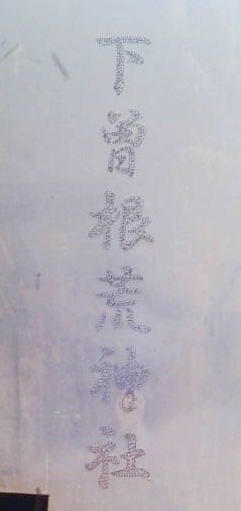 下曽根荒神社